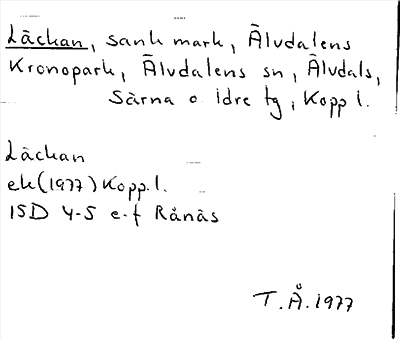 Läckan, sank mark, Älvdalens
Kronopark, Älvdalens sn, Älvdals,
Särna o. Idre tg, Kopp l.
Läckan
ek(1977) Kopp.l.
15D 4-5 e-f Rånäs
T.Å.1977